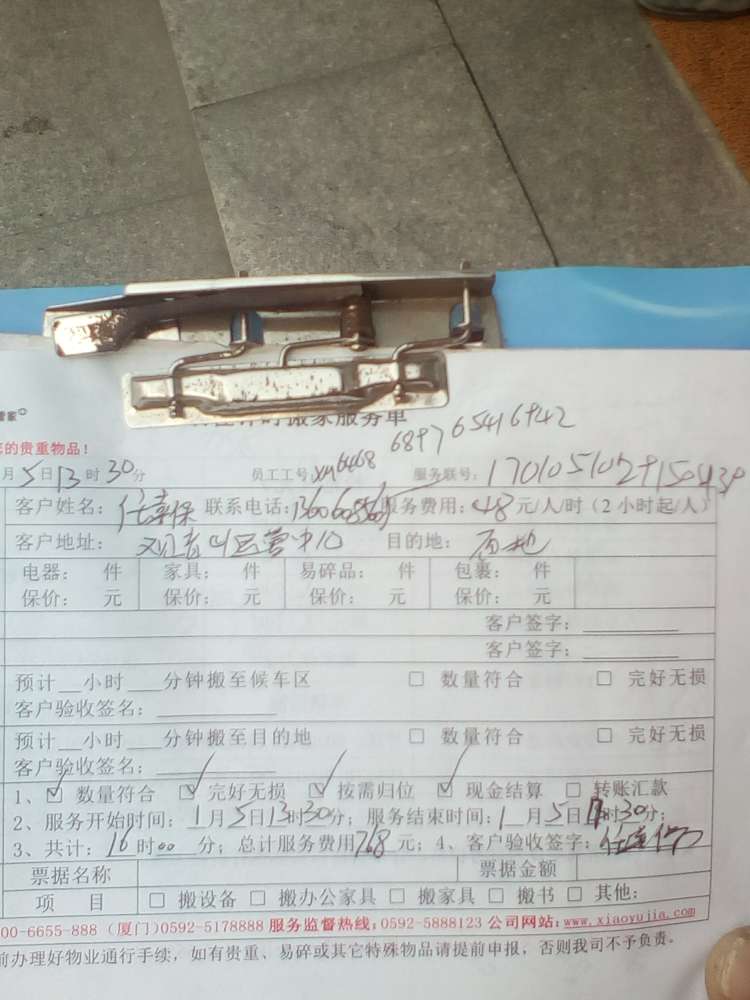 管家
的贵重物品！
搬家服务单
6897 65416942
月5日13时30分 员工工号: xm6468 服务联号:
客户姓名: 任幸保 联系电话: 服务费用: 48元/人/时（2小时起/人）
客户地址: 运营中心 目的地: 原地
电器: 件 家具: 件 易碎品: 件 包裹: 件
保价: 元 保价: 元 保价: 元 保价: 元
客户签字:
客户签字:
预计__小时___分钟搬至候车区 □ 数量符合 □ 完好无损
客户验收签名:
预计__小时___分钟搬至目的地 □ 数量符合 □ 完好无损
客户验收签名:
1、☑ 数量符合 ☑ 完好无损 ☑ 按需归位 ☑ 现金结算 □ 转账汇款
2、服务开始时间: 1月5日13时30分; 服务结束时间: 1月5日17时30分;
3、共计: 16时00分; 总计服务费用768元; 4、客户验收签字:
票据名称 票据金额
项 目 □ 搬设备 □ 搬办公家具 □ 搬家具 □ 搬书 □ 其他:
00-6655-888 (厦门)0592-5178888 服务监督热线:0592-5888123 公司网站:www.xiaoyujia.com
前办理好物业通行手续，如有贵重、易碎或其它特殊物品请提前申报，否则我司不予负责。